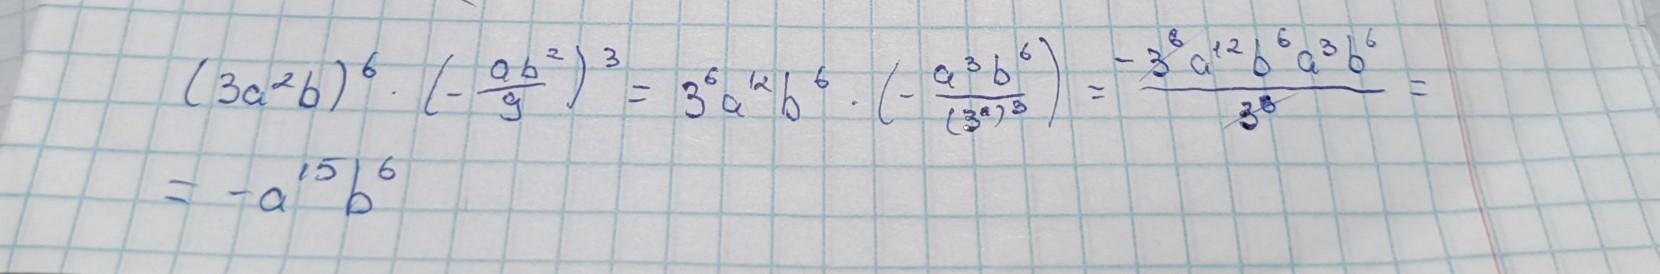 (3a²b)⁶ · (- ab²/9)³ = 3⁶a¹²b⁶ · (- a³b⁶/(3²)³) = -3⁶a¹²b⁶a³b⁶/3⁶ =
= -a¹⁵b⁶